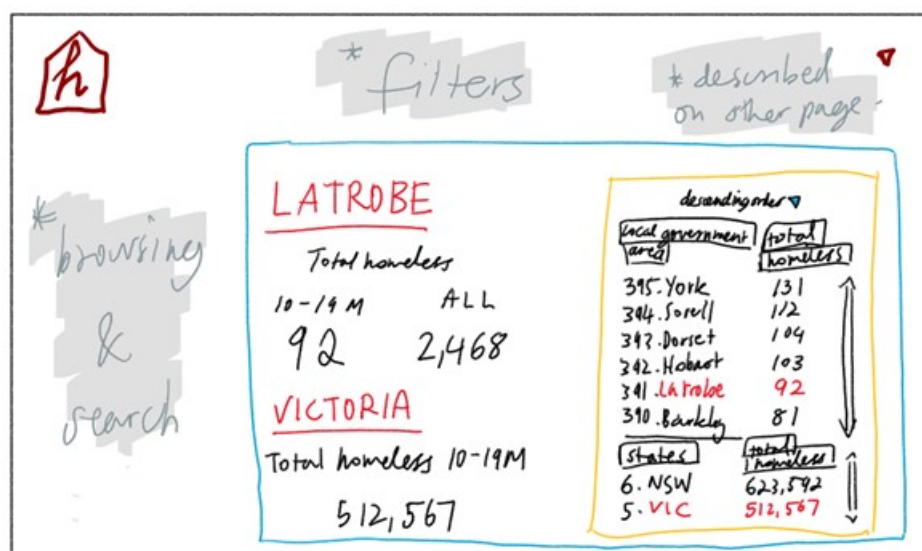 h
* filters
* described
on other page
*
browsing
&
search
LATROBE
Total homeless
10-19 M ALL
92 2,468
VICTORIA
Total homeless 10-19M
512,567
descending order
local government area total homeless
395. York 131
394. Sorell 112
393. Dorset 104
392. Hobart 103
391. Latrobe 92
390. Barkley 81
states total homeless
6. NSW 623,592
5. VIC 512,567